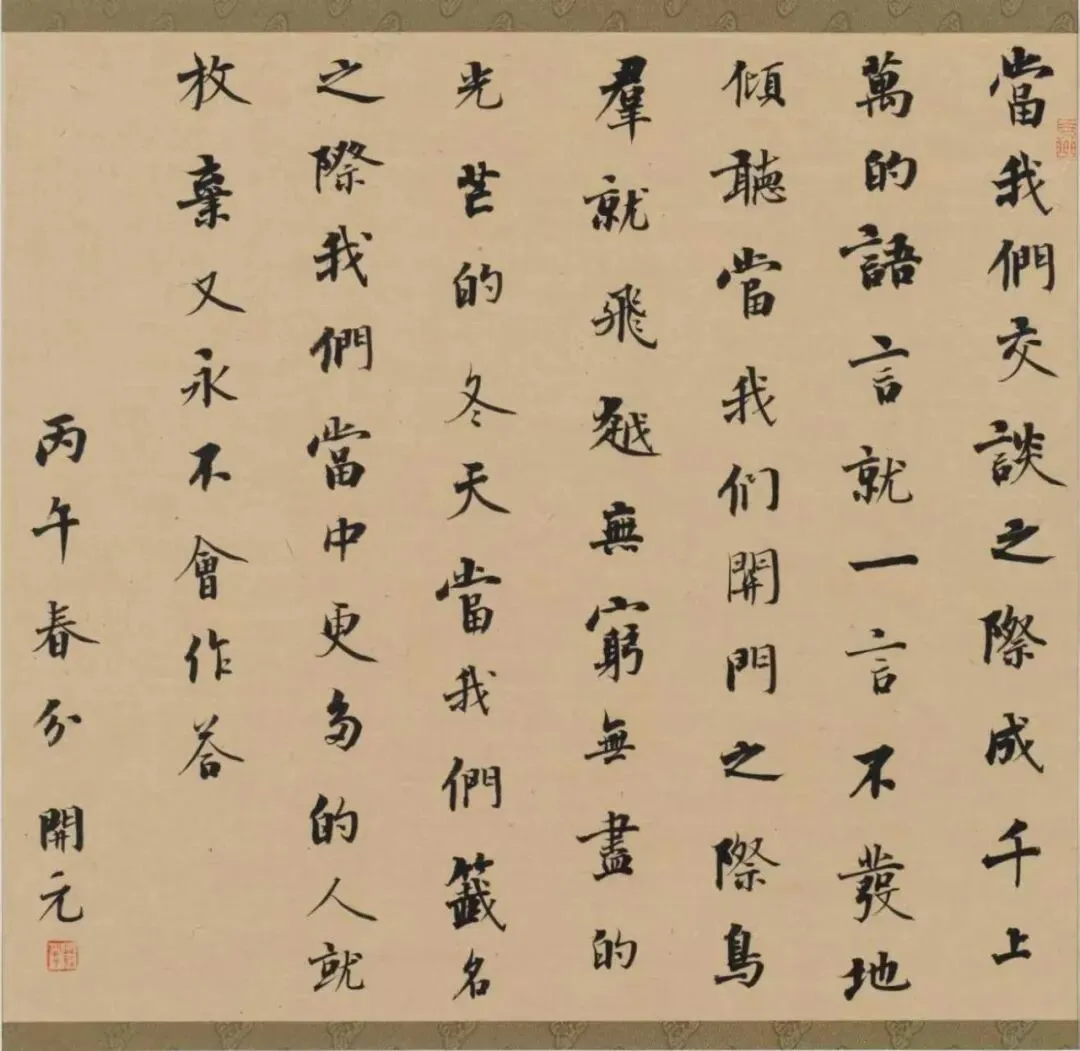 當我們交談之際成千上
萬的語言就一言不發地
傾聽當我们開門之際鳥
羣就飛越無窮無盡的
光芒的冬天當我們籤名
之際我們當中更多的人就
放棄又永不會作答
丙午春分開元